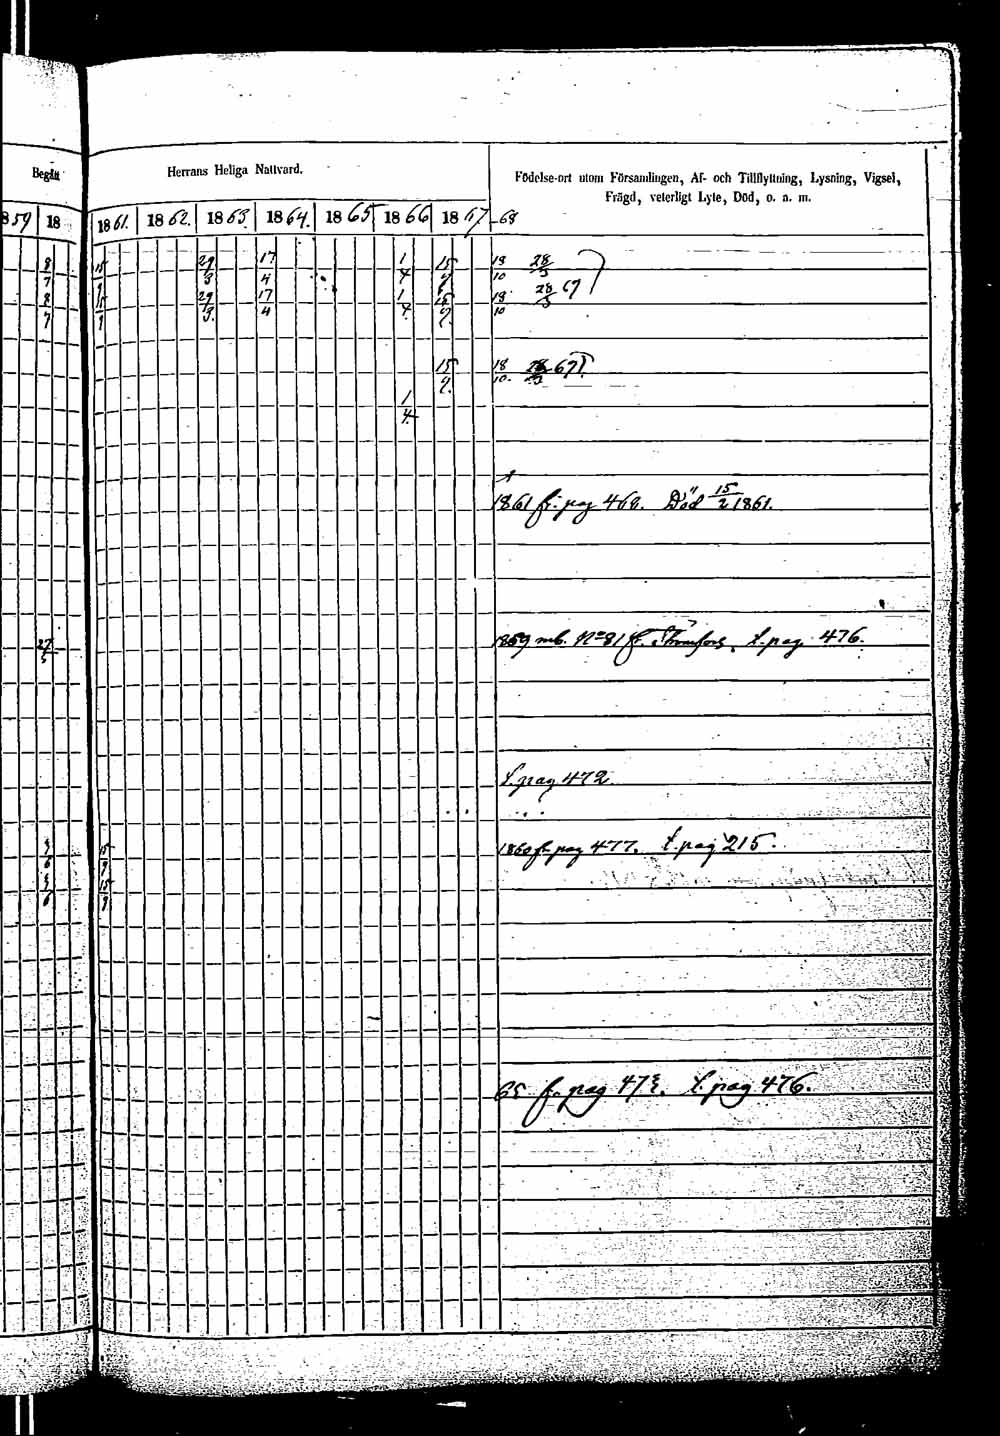 Begått Herrans Heliga Nattvard.
Födelse-ort utom Församlingen, Af- och Tillflyttning, Lysning, Vigsel,
Frägd, veterligt Lyte, Död, o. n. m.
1859 18 1861. 1862. 1863. 1864. 1865 1866 1867 -68
8/7 15/9 29/3 17/4 1/4 15/9 18/10 28/3
8/7 15/9 29/3. 17/4 1/4. 18/10 28/3 67
15/9. 18/10. 67
1/4.
1861 fr. pag 468. Död 15/2 1861.
27/5 1859 mb. No 81 fr. Strömfors. t. pag. 476.
t. pag 472.
15/9 1860 fr. pag 477. t. pag 215.
15/9
65 fr. pag 473. t. pag 476.